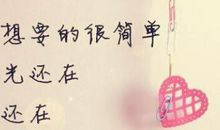 想要的很简单
光还在
还在